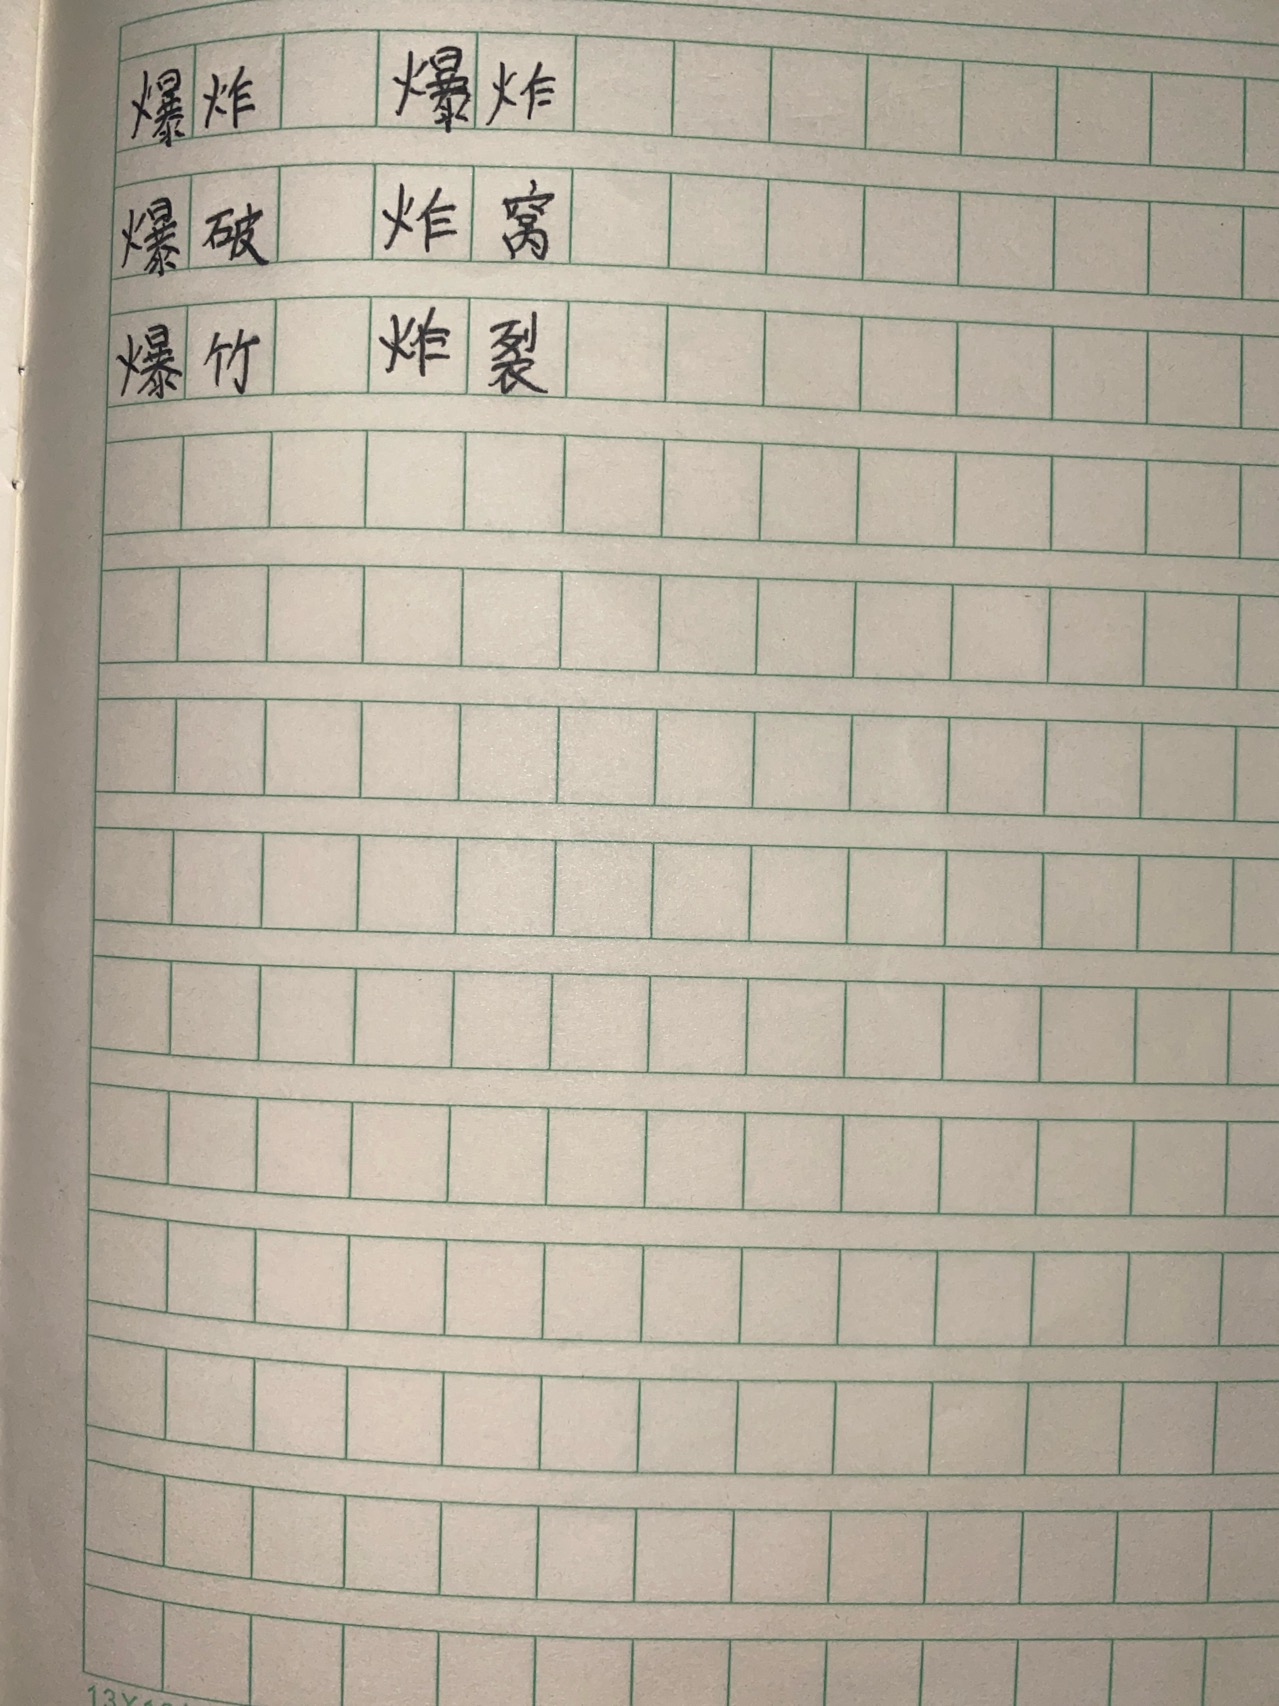 爆炸 爆炸
爆破 炸窝
爆竹 炸裂